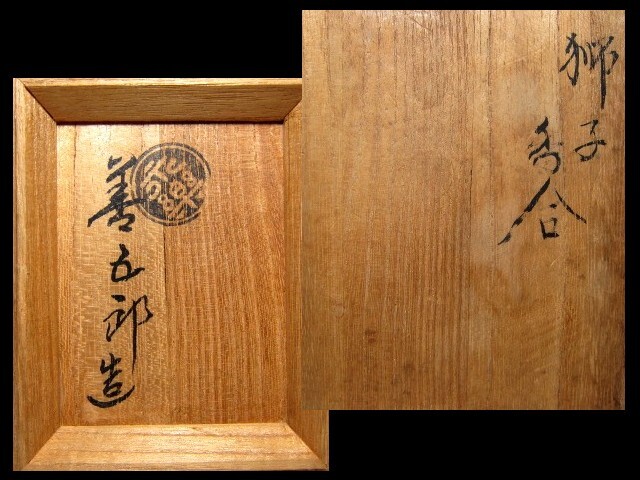 獅子
香合
善五郎造